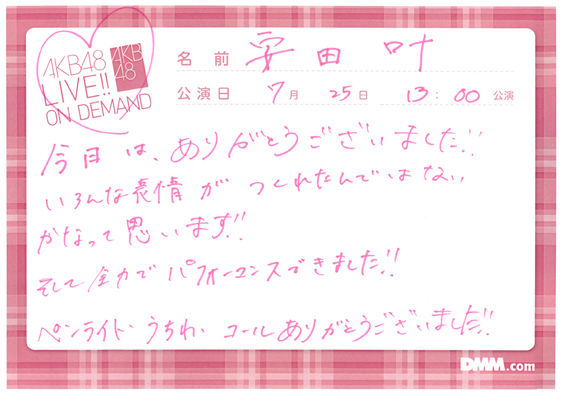 AKB48
LIVE!!
ON DEMAND
AKB
48
名前 安田 叶
公演日 7月 25日 13:00 公演
今日は、ありがとうございました!!
いろんな表情が つくれたんではない
かなって思います!!
そして全力で パフォーマンスできました!!
ペンライト、うちわ、コールありがとうございました!!
DMM.com